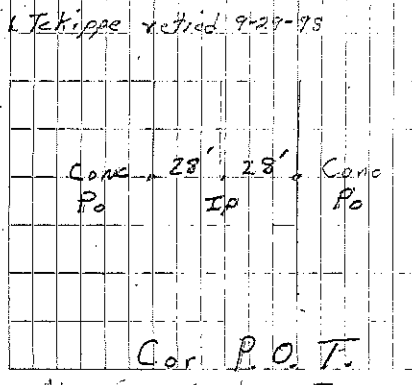 Tekippe retied 9-29-98
Conc 28' 28' Conc
Po Ip Po
Cor P.O.T.